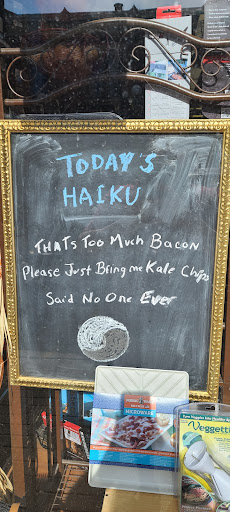 TODAY'S
HAIKU
THATS TOO MUCH BACON
Please Just Bring me Kale Chips
Said No One Ever
MICROWAVE
Veggetti